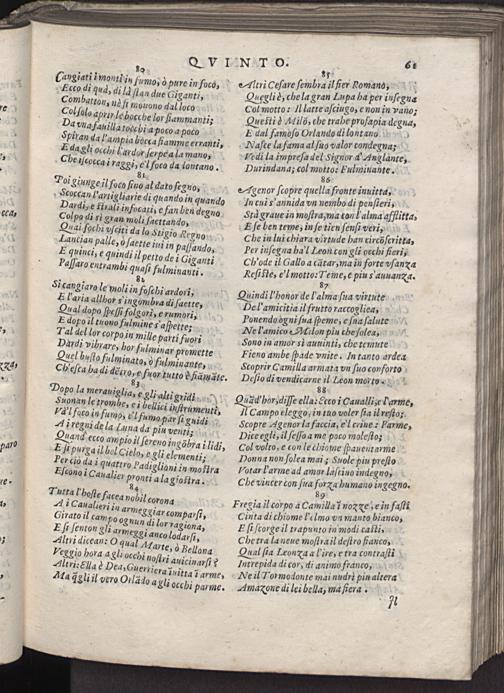 QVINTO. 61
80
Cangiati i monti in fumo, ò pure in foco,
Ecco di quà, di là stan due Giganti,
Combatton, nè si mouono dal loco
Col solo aprir le bocche lor fiammanti;
Da vna fauilla tocchi a poco a poco
Spiran da l'ampia bocca fiamme erranti,
E da gli occhi l'ardor serpe a la mano,
Che iscocca i raggi, e'l foco da lontano.
81
Poi giunge il foco sino al dato segno,
Scoccan l'artigliarie di quando in quando
Dardi, e strali infocati, e fan ben degno
Colpo di sì gran moli, saettando,
Quai foschi vsciti da lo Stigio Regno
Lancian palle, ò saette ini in passando,
E quinci, e quindi il petto de i Giganti
Passaro entrambi quasi fulminanti.
82
Si cangiaro le moli in foschi ardori,
E l'aria allhor s'ingombra di saette,
Qual dopo spessi folgori, e rumori,
E dopo il tuono fulmine s'aspette;
Tal del lor corpo in mille parti fuori
Dardi vibrare, hor fulminar promette
Quel busto fulminato, ò fulminante,
Ch'esca ha di dẽtro, e fuor tutto è fiãmãte.
83
Dopo la merauiglia, e gli alti gridi
Suonan le trombe, e i bellici instrumenti,
Và'l foco in fumo, e'l fumo par si guidi
A i regni de la Luna da più venti;
Quand' ecco ampio il sereno ingõbra i lidi,
E si purga il bel Cielo, e gli elementi;
Per ciò da i quattro Padiglioni in mostra
Escono i Caualier pronti a la giostra.
84
Tutta l'hoste facea nobil corona
A i Caualieri in armeggiar comparsi,
Girato il campo ognun di lor ragiona,
E si senton gli armeggi anco lodarsi,
Altri dicean: O qual Marte, ò Bellona
Veggio hora a gli occhi nostri auicinarsi?
Altri: Ella è Dea, Guerriera ĩuitta ĩ arme,
Ma q̃gli il vero Orlãdo a gli occhi parme.
85
Altri Cesare sembra il fier Romano,
Quegli è, che la gran Lupa ha per insegna
Col motto: Il latte asciugo, e non in vano;
Questi è Milõ, che trahe prosapia degna,
E dal famoso Orlando di lontano
Nasce la fama al suo valor condegna;
Vedi la impresa del Signor d'Anglante,
Durindana; col motto: Fulminante.
86
Agenor scopre quella fronte inuitta,
In cui s'annida vn nembo di pensieri,
Stà graue in mostra, ma con l'alma afflitta,
E se ben teme, in se tien sensi veri,
Che in lui chiara virtude han circõscritta,
Per insegna ha'l Leon con gli occhi fieri,
Ch'ode il Gallo a cãtar, ma in forte vsanza
Resiste, e'l motto: Teme, e piu s'auuanza.
87
Quindi l'honor de l'alma sua virtute
De l'amicitia il frutto raccogliea,
Ponendo ogni sua speme, e sua salute
Ne l'amico Milon piu che solea,
Sono in amor sì auuinti, che temute
Fieno ambe spade vnite. In tanto ardea
Scoprir Camilla armata vn suo conforto
Desio di vendicarne il Leon morto.
88
Quãd'hor, disse ella: Ecco i Caualli; e l'arme,
Il Campo eleggo, in tuo voler sia il resto;
Scopre Agenor la faccia, e'l crine: Parme,
Dice egli, il sesso a me poco molesto;
Col volto, e con le chiome spauentarme
Donna non solea mai; Suole piu presto
Votar l'arme ad amor lasciuo indegno,
Che vincer con sua forza humano ingegno.
89
Fregia il corpo a Camilla ĩ nozze, e in fasti
Cinta di chiome l'elmo vn manto bianco,
E si scorge il trapunto in modi casti,
Che tra la neue mostra il destro fianco,
Qual sia Leonza a l'ire, e tra contrasti
Intrepida di cor, di animo franco,
Ne il Tormodonte mai nudrì piu altera
Amazone di lei bella, ma fiera.
Il